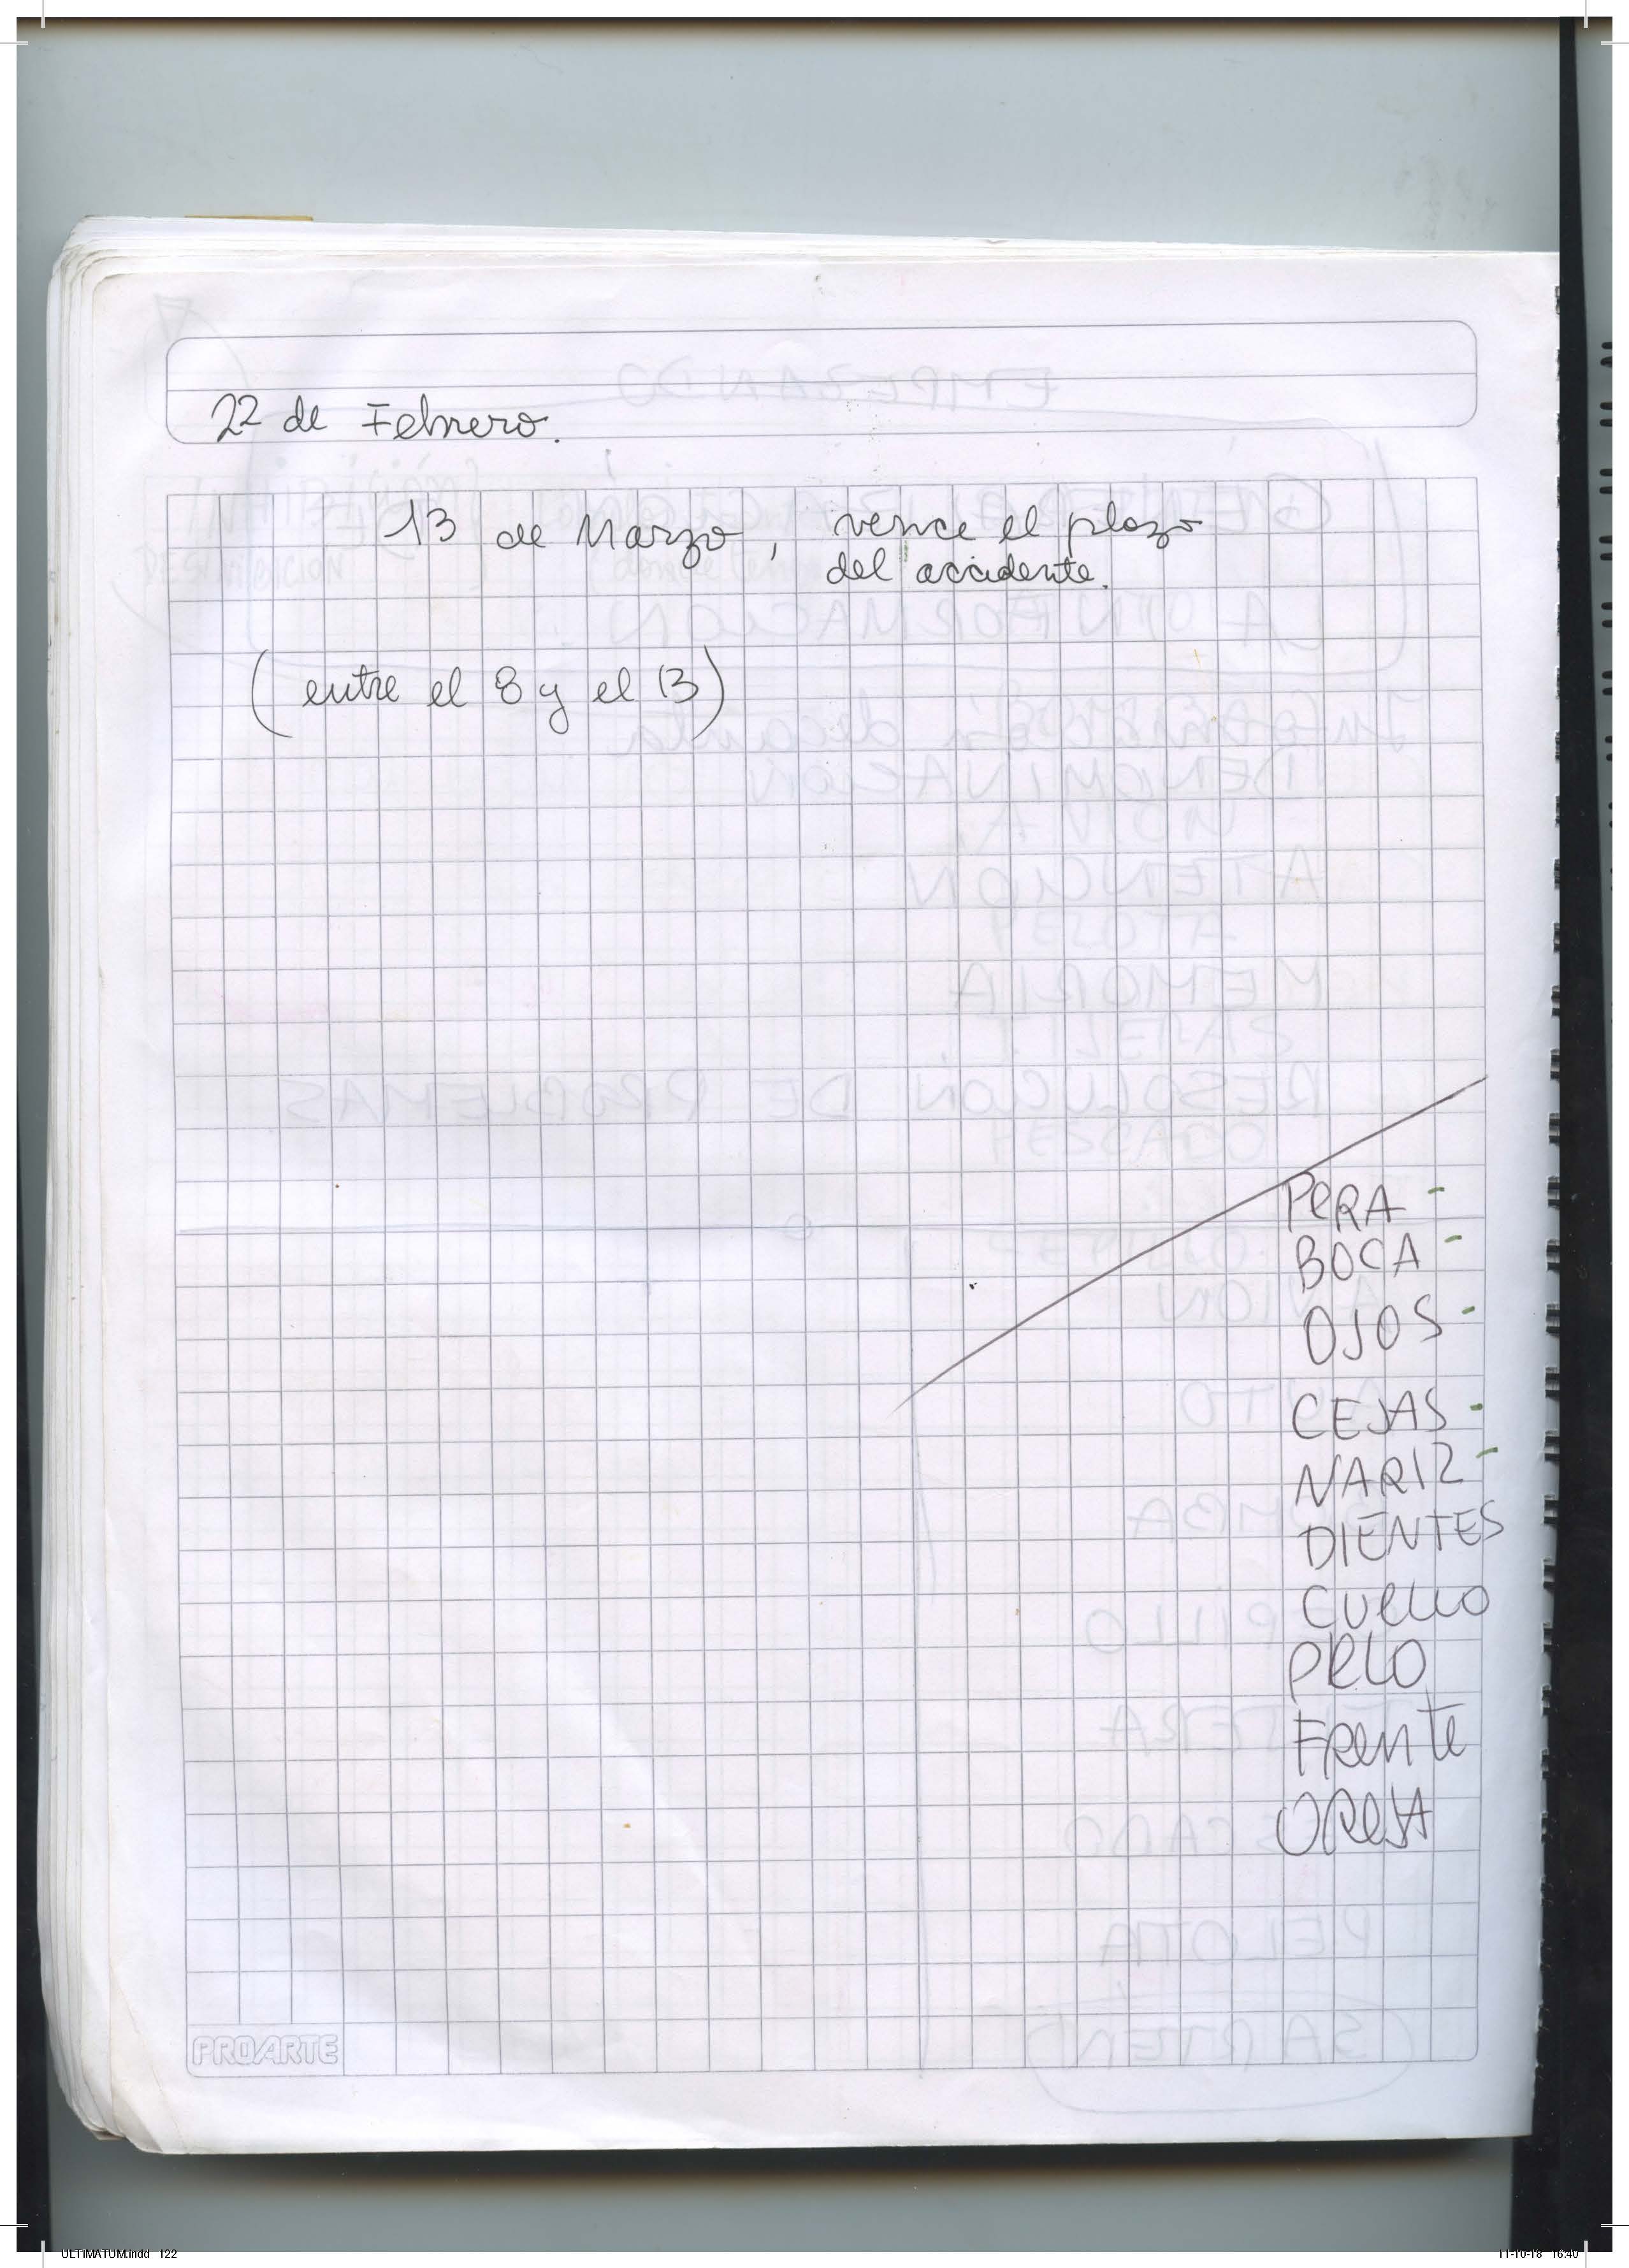 22 de Febrero.
13 de Marzo, vence el plazo
del accidente.
(entre el 8 y el 13)
PERA -
BOCA -
OJOS -
CEJAS -
NARIZ -
DIENTES
CUELLO
PELO
FRENTE
OREJA
PROARTE
ULTIMATUM.indd 122
11-10-18 16:40